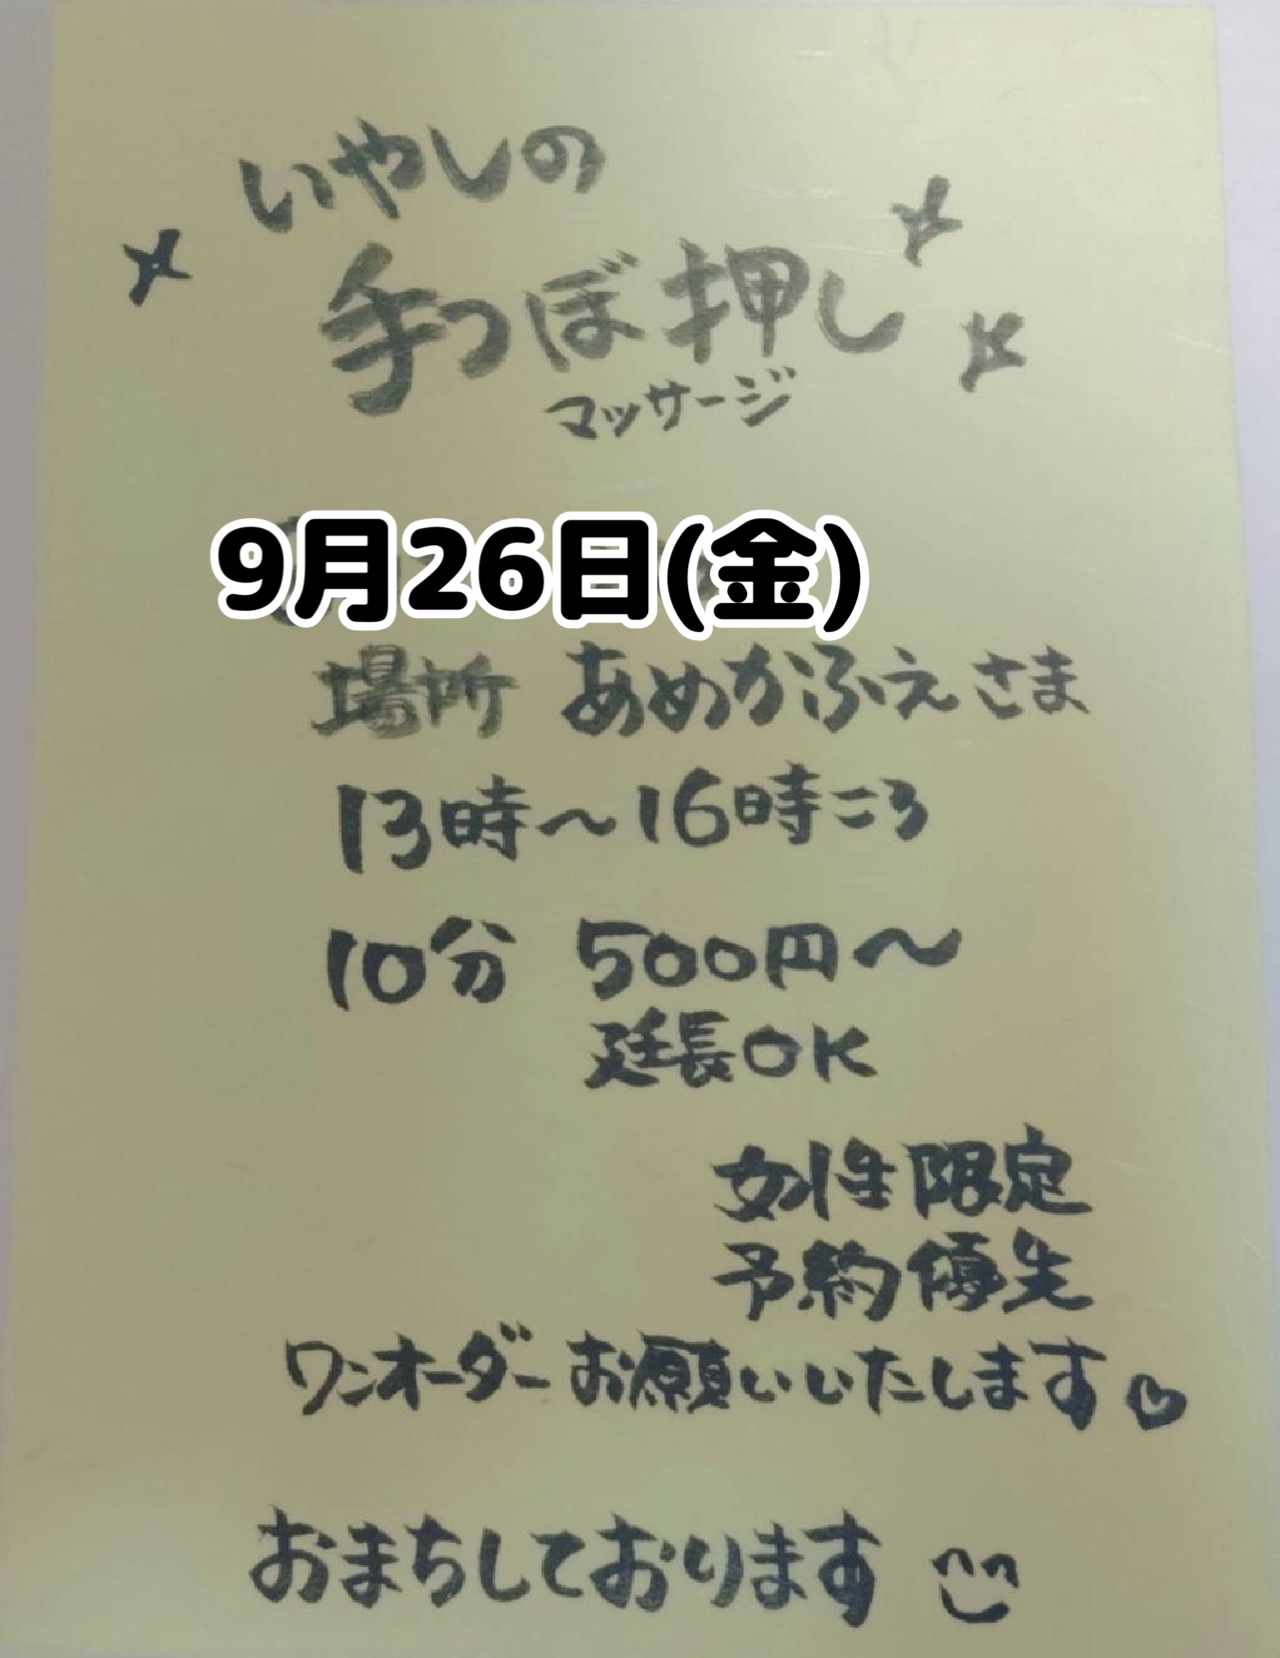 いやしの
手つぼ押し
マッサージ
9月26日(金)
場所 あめかふぇさま
13時～16時ころ
10分 500円～
延長OK
女性限定
予約優先
ワンオーダーお願いいたします♡
おまちしております